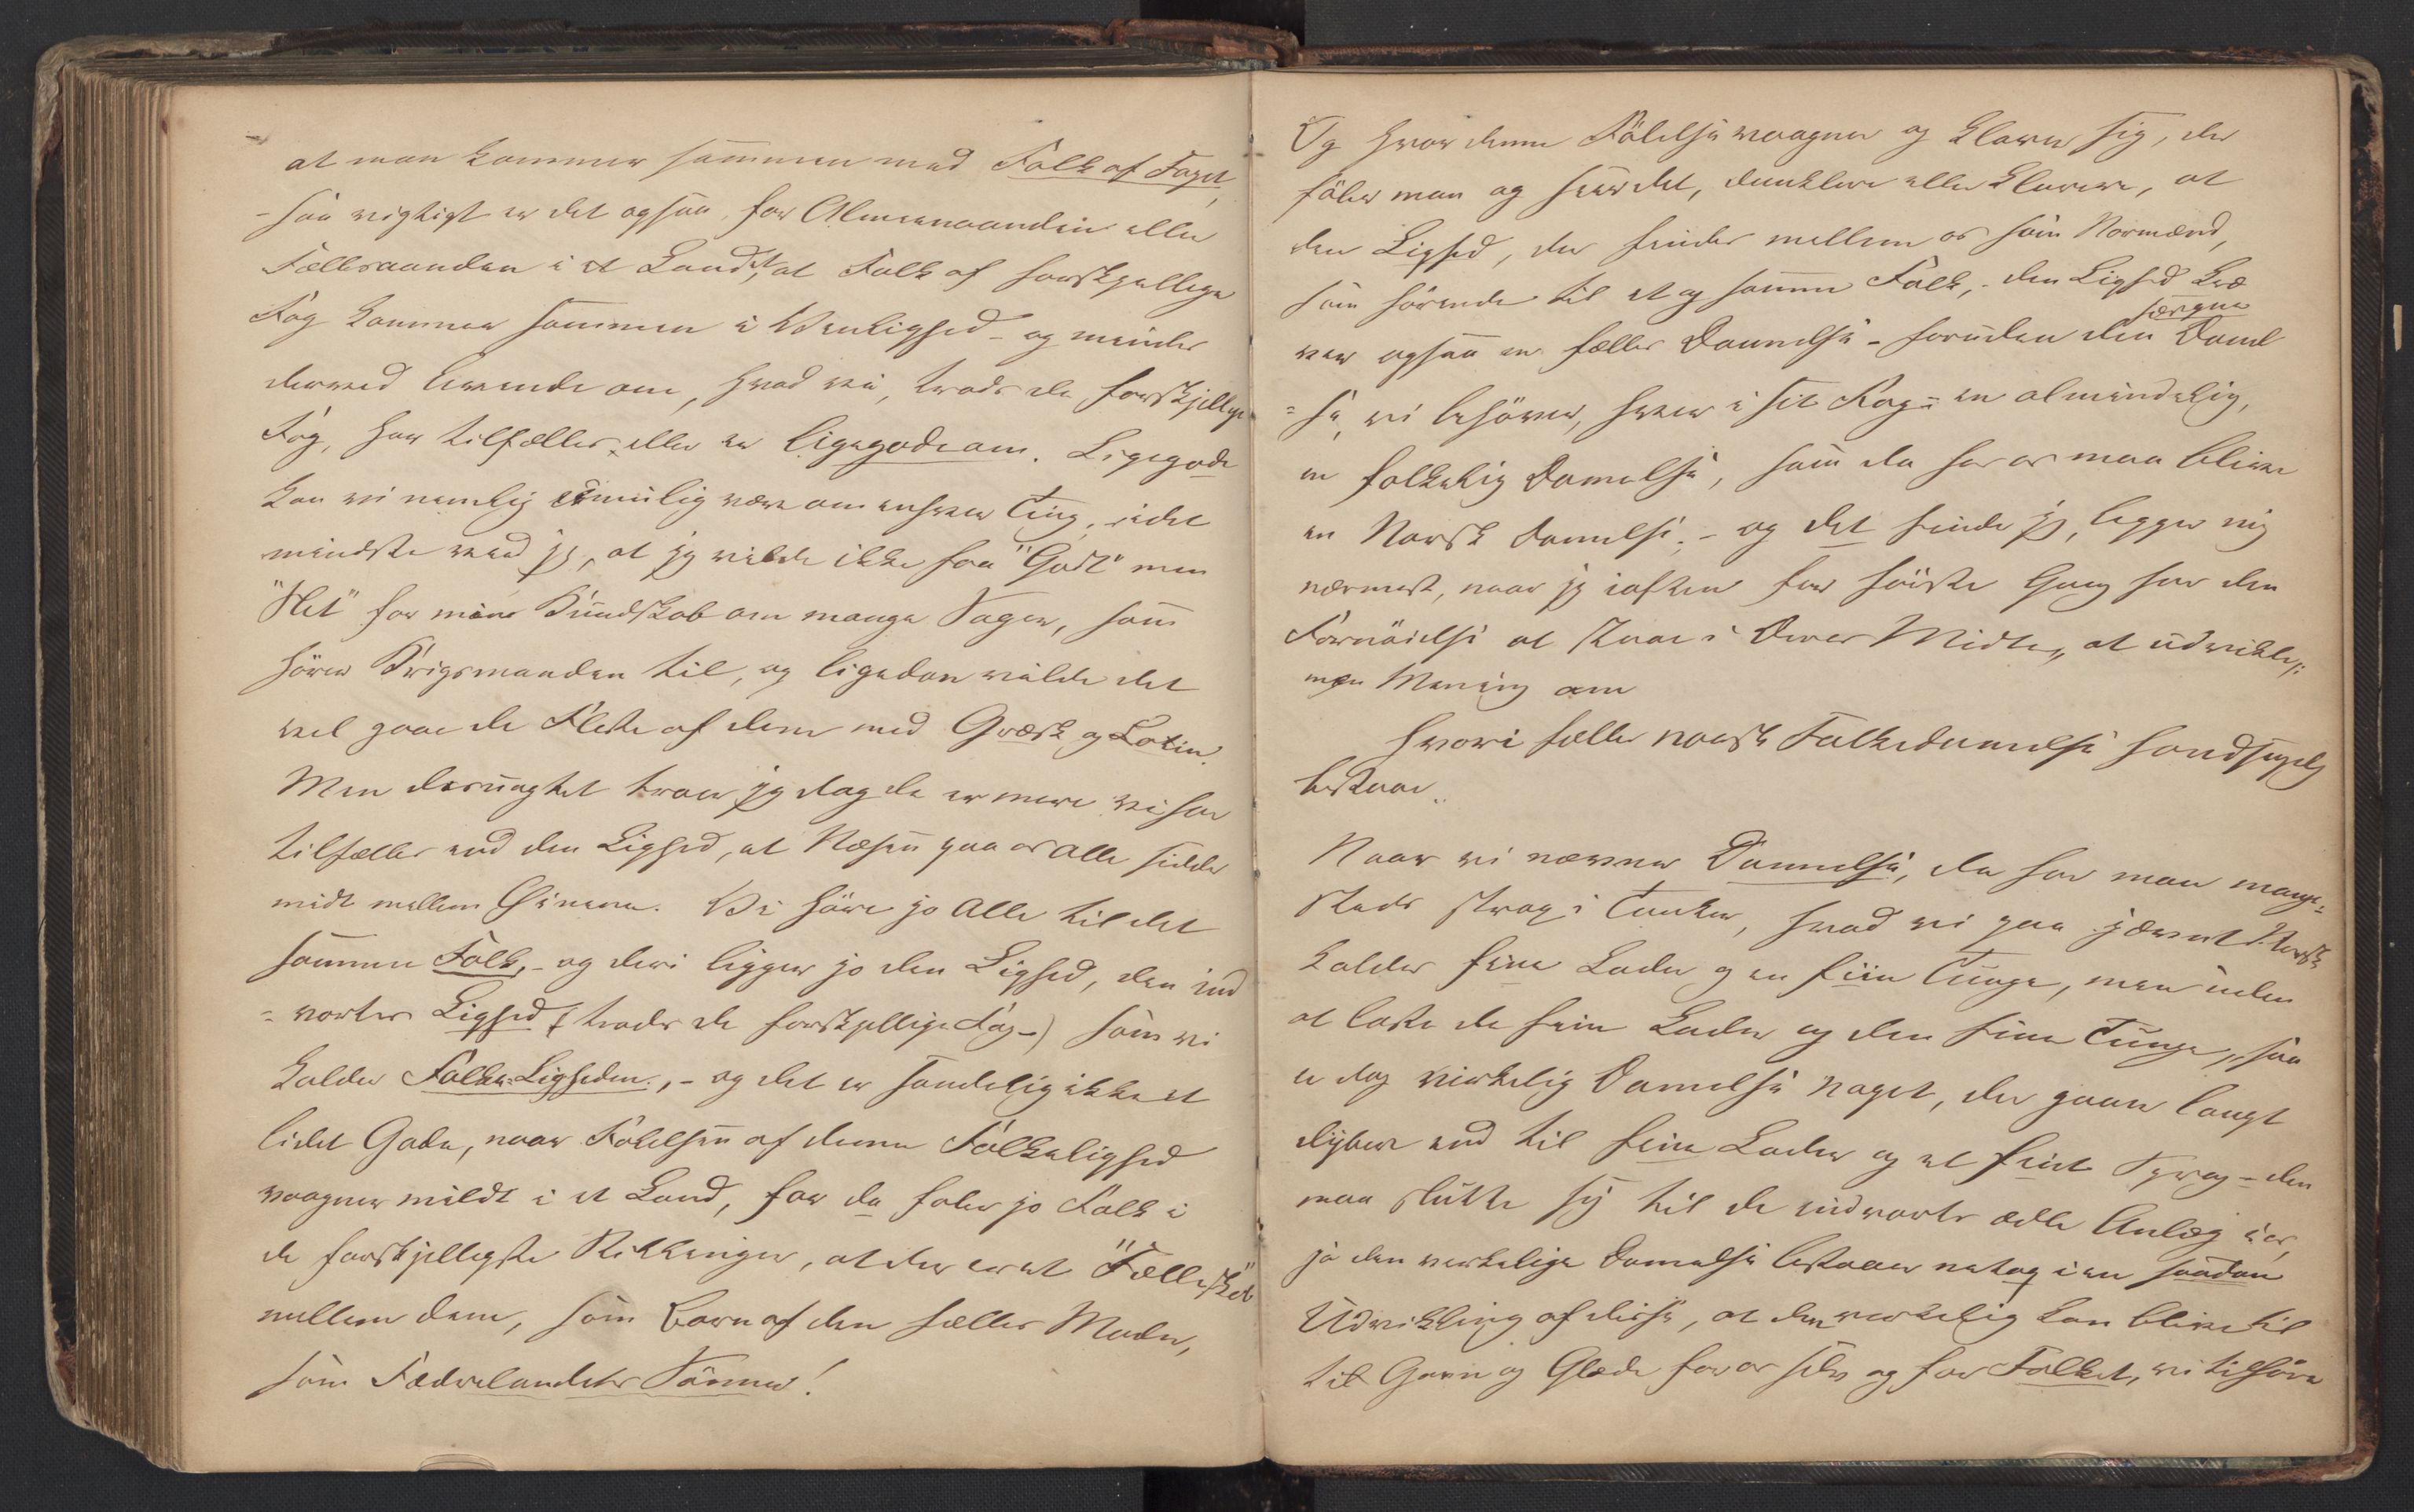 at man kommer sammen med Folk af Faget,
- saa vigtigt er det ogsaa, for Almeenaanden eller
Fællesaanden i et Land, at Folk af forskjellige
Fag kommer sammen i Venlighed - og mindes
derved levende om, hvad vi, trods de forskjellige
Fag, har tilfælles, eller er ligegode om. Ligegode
kan vi nemlig umulig være om enhver Ting, idet
mindste veed jeg, at jeg vilde ikke faa "Godt" men
"Slet" for mine Kundskab om mange Sager, som
hører Krigsmanden til, og ligedan vilde det
vel gaae de Fleste af dem med Græsk og Latin.
Men desuagtet troer jeg dog der er mere vi har
tilfælles end den Lighed, at Næsen paa os alle sidder
midt mellem Øinene. Vi høre jo Alle til det
samme Folk, - og deri ligger jo den Lighed, den ind
= vortes Lighed (trods de forskjellige Fag -) som vi
kalder Folke-Ligheden., - og det er sandelig ikke et
lidet Gode, naar Følelsen af denne Folkelighed
vaagner mildt i et Land, for da føler jo Folk i
de forskjelligste Stillinger, at der er et "Fællesskab"
mellem dem, som Børn af den fælles Moder,
som Fædrelandets Sønner!
Og hvor denne Følelse vaagner og klarer sig, der
føler man og seer det, dunklere eller klarere, at
den Lighed, der finder mellem os som Normænd,
som hørende til et og samme Folk, - den Lighed kræ
særegne
ver ogsaa en fælles Dannelse - foruden den Dannel
= se, vi behøver, hver i sit Fag = en almindelig,
en folkelig Dannelse, som da for os maa blive
en Norsk Dannelse; - og det finder jeg, ligger mig
nærmest, naar jeg iaften for første Gang har den
Fornøielse at staae i Deres Midte, at udvikle,:
min Mening om
Hvori fælles norsk Folkedannelse hovedsagelig
bestaaer.
Naar vi nævner Dannelse, da har man mange-
steds strax i Tanker, hvad vi paa jævnt Norsk
kalder fine Lader og en fiin Tunge, men uden
at laste de fine Lader og den fine Tunge, saa
er dog virkelig Dannelse noget, der gaaer langt
dybere end til fine Lader og et fiint Sprog - den
maa slutte sig til de indvortes ædle Anlæg i os,
ja den verkelige Dannelse bestaaer netop i en saadan
Udvikling af disse, at den verkelig kan blive til
til Gavn og Glæde for os selv og for Folket, vi tilhøre